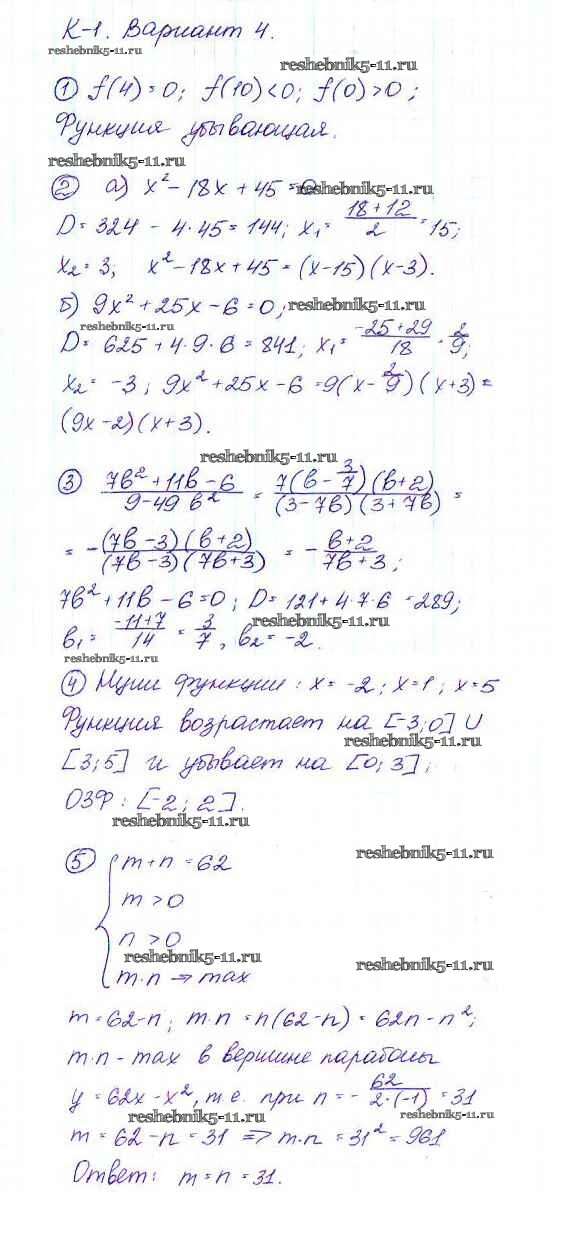 К-1. Вариант 4.
reshebnik5-11.ru
reshebnik5-11.ru
① f(4)=0; f(10)<0; f(0)>0;
Функция убывающая.
reshebnik5-11.ru
② а) x² - 18x + 45 = 0
D = 324 - 4·45 = 144; x₁ = (18+12)/2 = 15;
x₂ = 3; x² - 18x + 45 = (x-15)(x-3).
б) 9x² + 25x - 6 = 0; reshebnik5-11.ru
reshebnik5-11.ru
D = 625 + 4·9·6 = 841; x₁ = (-25+29)/18 = 2/9;
x₂ = -3; 9x² + 25x - 6 = 9(x - 2/9)(x+3) =
(9x-2)(x+3).
reshebnik5-11.ru
③ (7b² + 11b - 6)/(9 - 49b²) = 7(b - 3/7)(b+2)/((3-7b)(3+7b)) =
= -(7b-3)(b+2)/((7b-3)(7b+3)) = -(b+2)/(7b+3);
7b² + 11b - 6 = 0; D = 121 + 4·7·6 = 289;
reshebnik5-11.ru
b₁ = (-11+7)/14 = 3/7, b₂ = -2.
reshebnik5-11.ru
④ Нули функции: x = -2; x = 1; x = 5
Функция возрастает на [-3; 0] U
reshebnik5-11.ru
[3; 5] и убывает на [0; 3];
ОЗФ: [-2; 2].
reshebnik5-11.ru
⑤ { m + n = 62
reshebnik5-11.ru
m > 0
n > 0
reshebnik5-11.ru
m·n ⇒ max
reshebnik5-11.ru
m = 62-n; m·n = n(62-n) = 62n - n²;
m·n - max в вершине параболы
y = 62x - x², т.е. при n = - 62/(2·(-1)) = 31
reshebnik5-11.ru
reshebnik5-11.ru
m = 62 - n = 31 ⇒ m·n = 31² = 961
Ответ: m = n = 31.